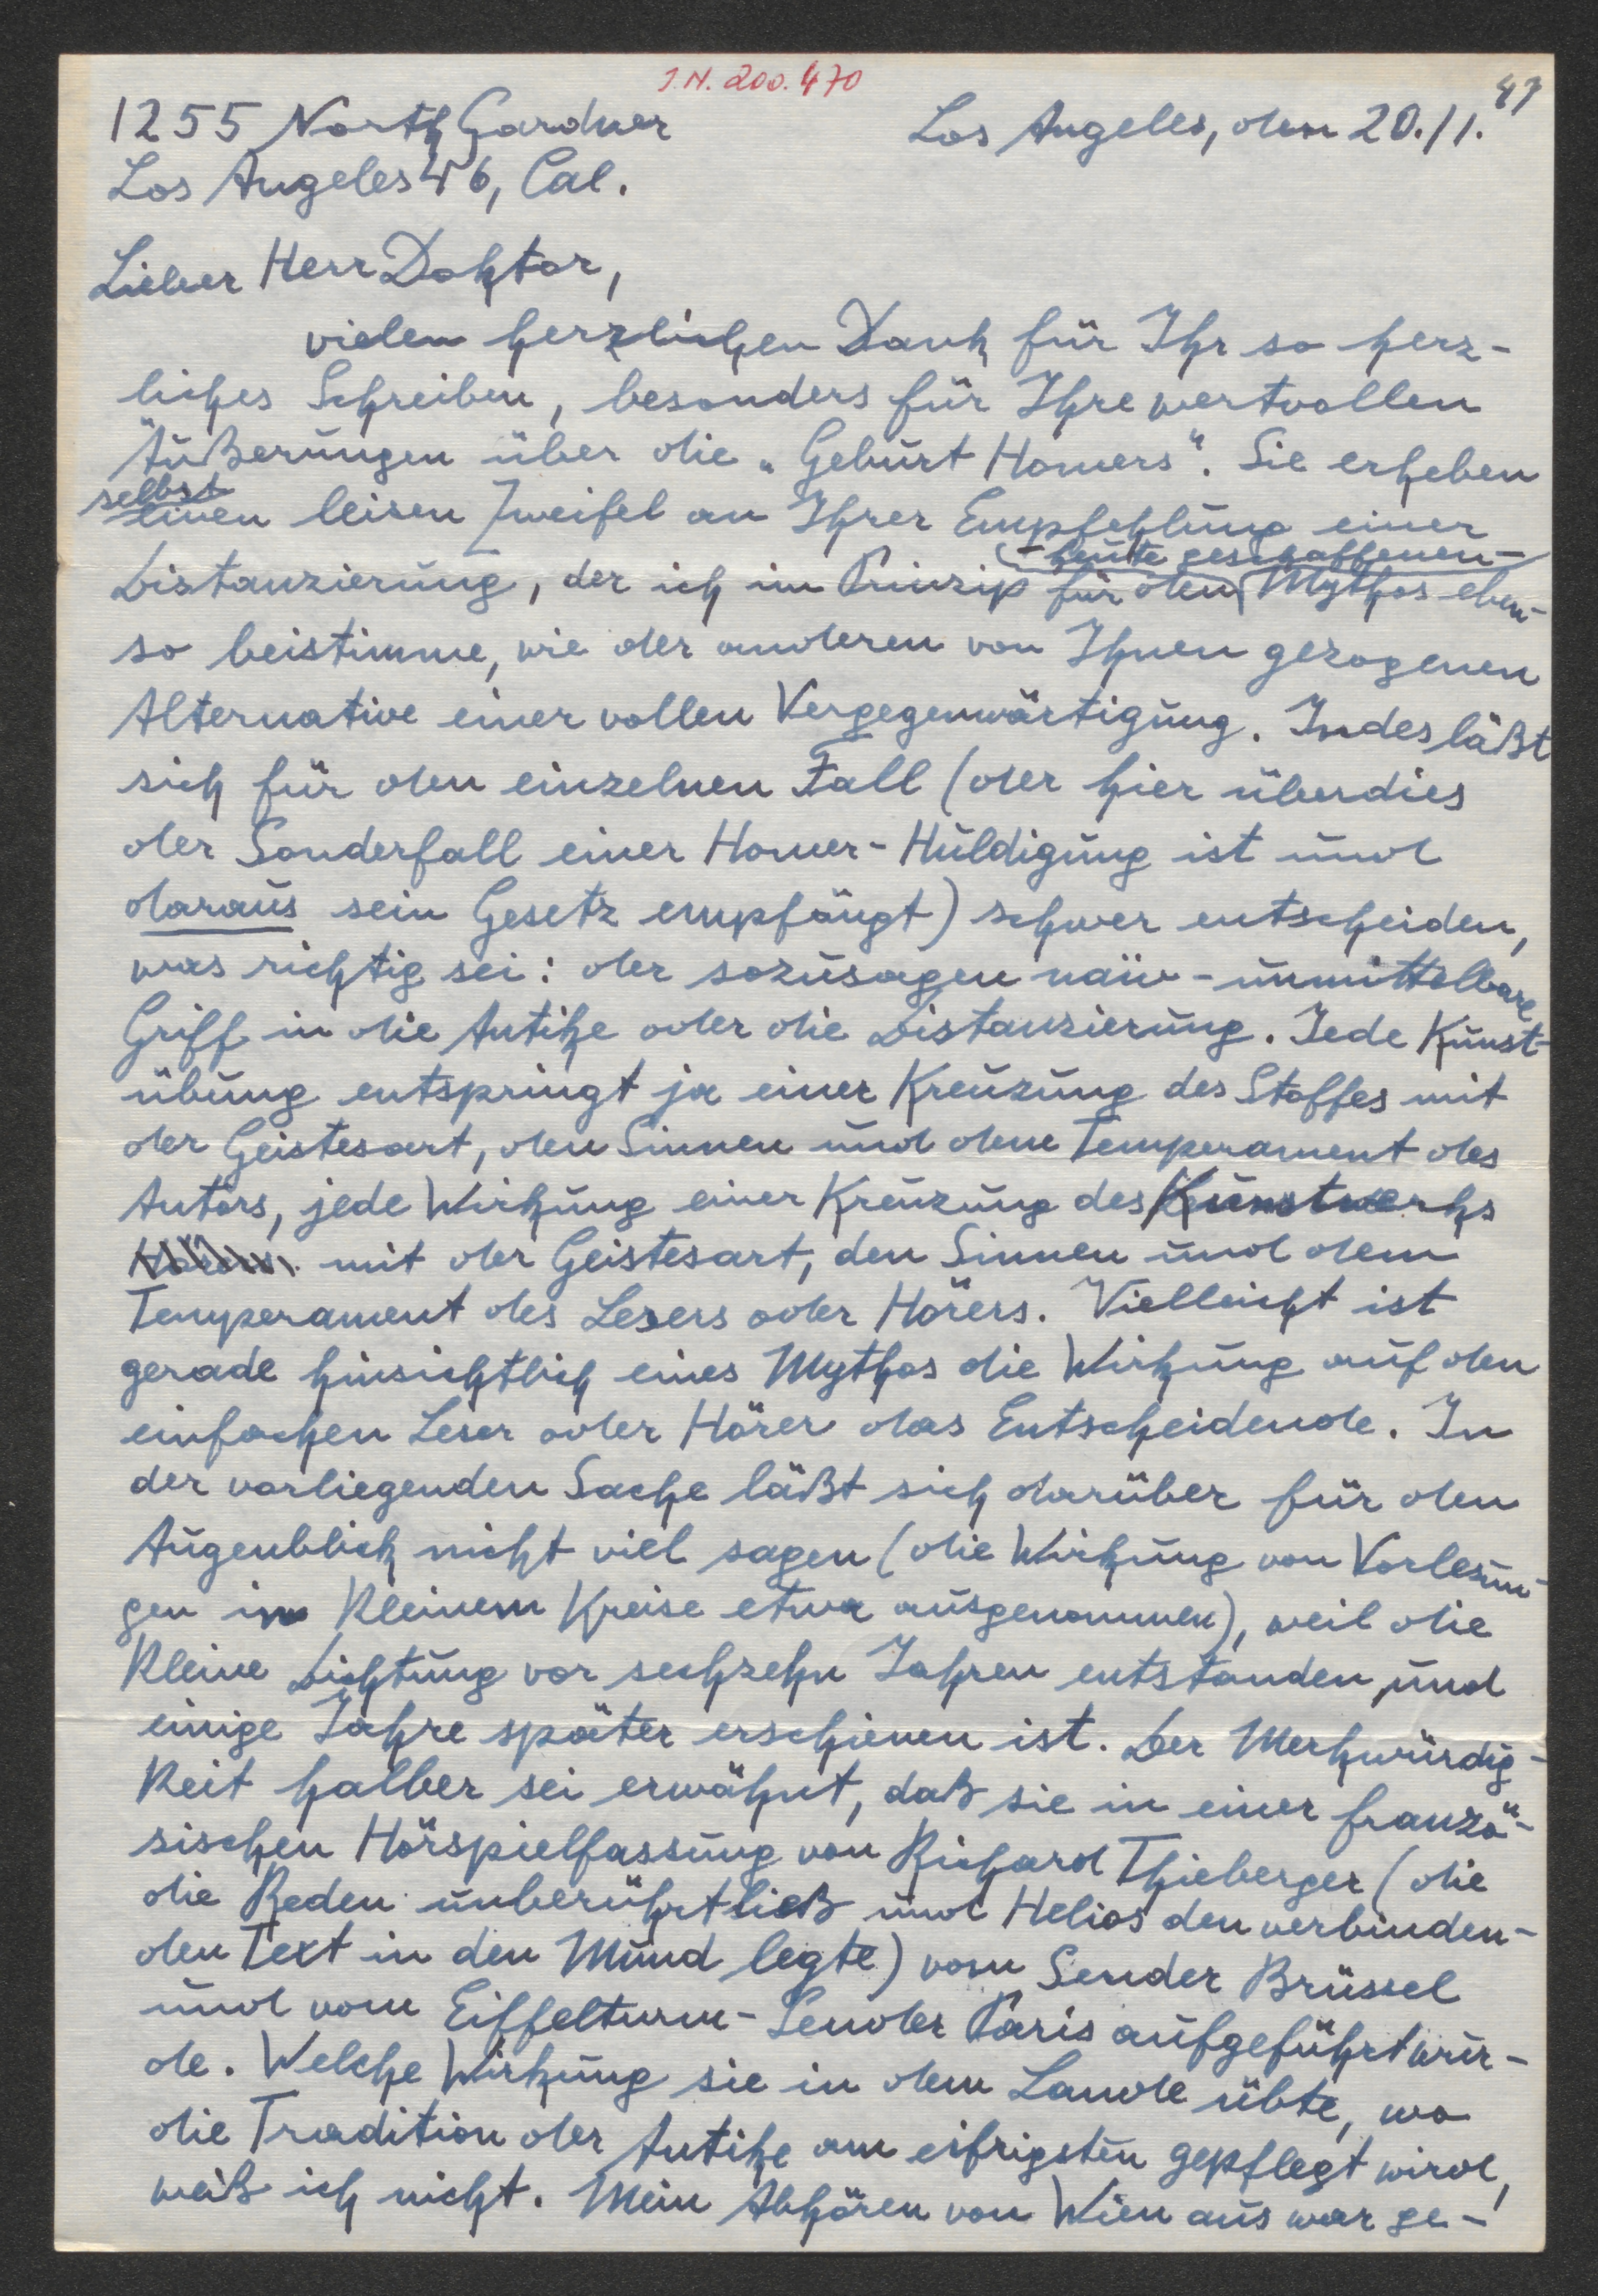 J.N. 200.470
47
1255 North Gardner
Los Angeles, den 20./1.
Los Angeles 46, Cal.
Lieber Herr Doktor,
vielen herzlichen Dank für Ihr so herz-
liches Schreiben, besonders für Ihre wertvollen
Äußerungen über die „Geburt Homers". Sie erheben
selbst
einen leisen Zweifel an Ihrer Empfehlung einer
- heute geschaffenen -
Distanzierung, der ich im Prinzip für den Mythos eben-
so beistimme, wie der anderen von Ihnen gezogenen
Alternative einer vollen Vergegenwärtigung. Indes läßt
sich für den einzelnen Fall (der hier überdies
der Sonderfall einer Homer-Huldigung ist und
daraus sein Gesetz empfängt) schwer entscheiden,
was richtig sei: der sozusagen naiv-unmittelbare
Griff in die Antike oder die Distanzierung. Jede Kunst-
übung entspringt ja einer Kreuzung des Stoffes mit
der Geistesart, den Sinnen und dem Temperament des
Autors, jede Wirkung einer Kreuzung des Kunstwerks
mit der Geistesart, den Sinnen und dem
Temperament des Lesers oder Hörers. Vielleicht ist
gerade hinsichtlich eines Mythos die Wirkung auf den
einfachen Leser oder Hörer das Entscheidende. In
der vorliegenden Sache läßt sich darüber für den
Augenblick nicht viel sagen (die Wirkung von Vorlesun-
gen im kleinem Kreise etwa ausgenommen), weil die
kleine Dichtung vor sechzehn Jahren entstanden, und
einige Jahre später erschienen ist. Der Merkwürdig-
keit halber sei erwähnt, daß sie in einer franzö-
sischen Hörspielfassung von Richard Thieberger (die
die Reden unberührt ließ und Helios den verbinden-
den Text in den Mund legte) vom Sender Brüssel
und vom Eiffelturm-Sender Paris aufgeführt wur-
de. Welche Wirkung sie in dem Lande übte, wo
die Tradition der Antike am eifrigsten gepflegt wird,
weiß ich nicht. Mein Abhören von Wien aus war ge-